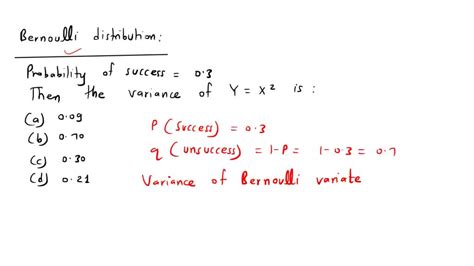 Bernoulli distribution:
Probability of success = 0.3
Then the variance of Y = X² is :
(a) 0.09
(b) 0.70
(c) 0.30
(d) 0.21
P (success) = 0.3
q (unsuccess) = 1-P = 1-0.3 = 0.7
Variance of Bernoulli variate